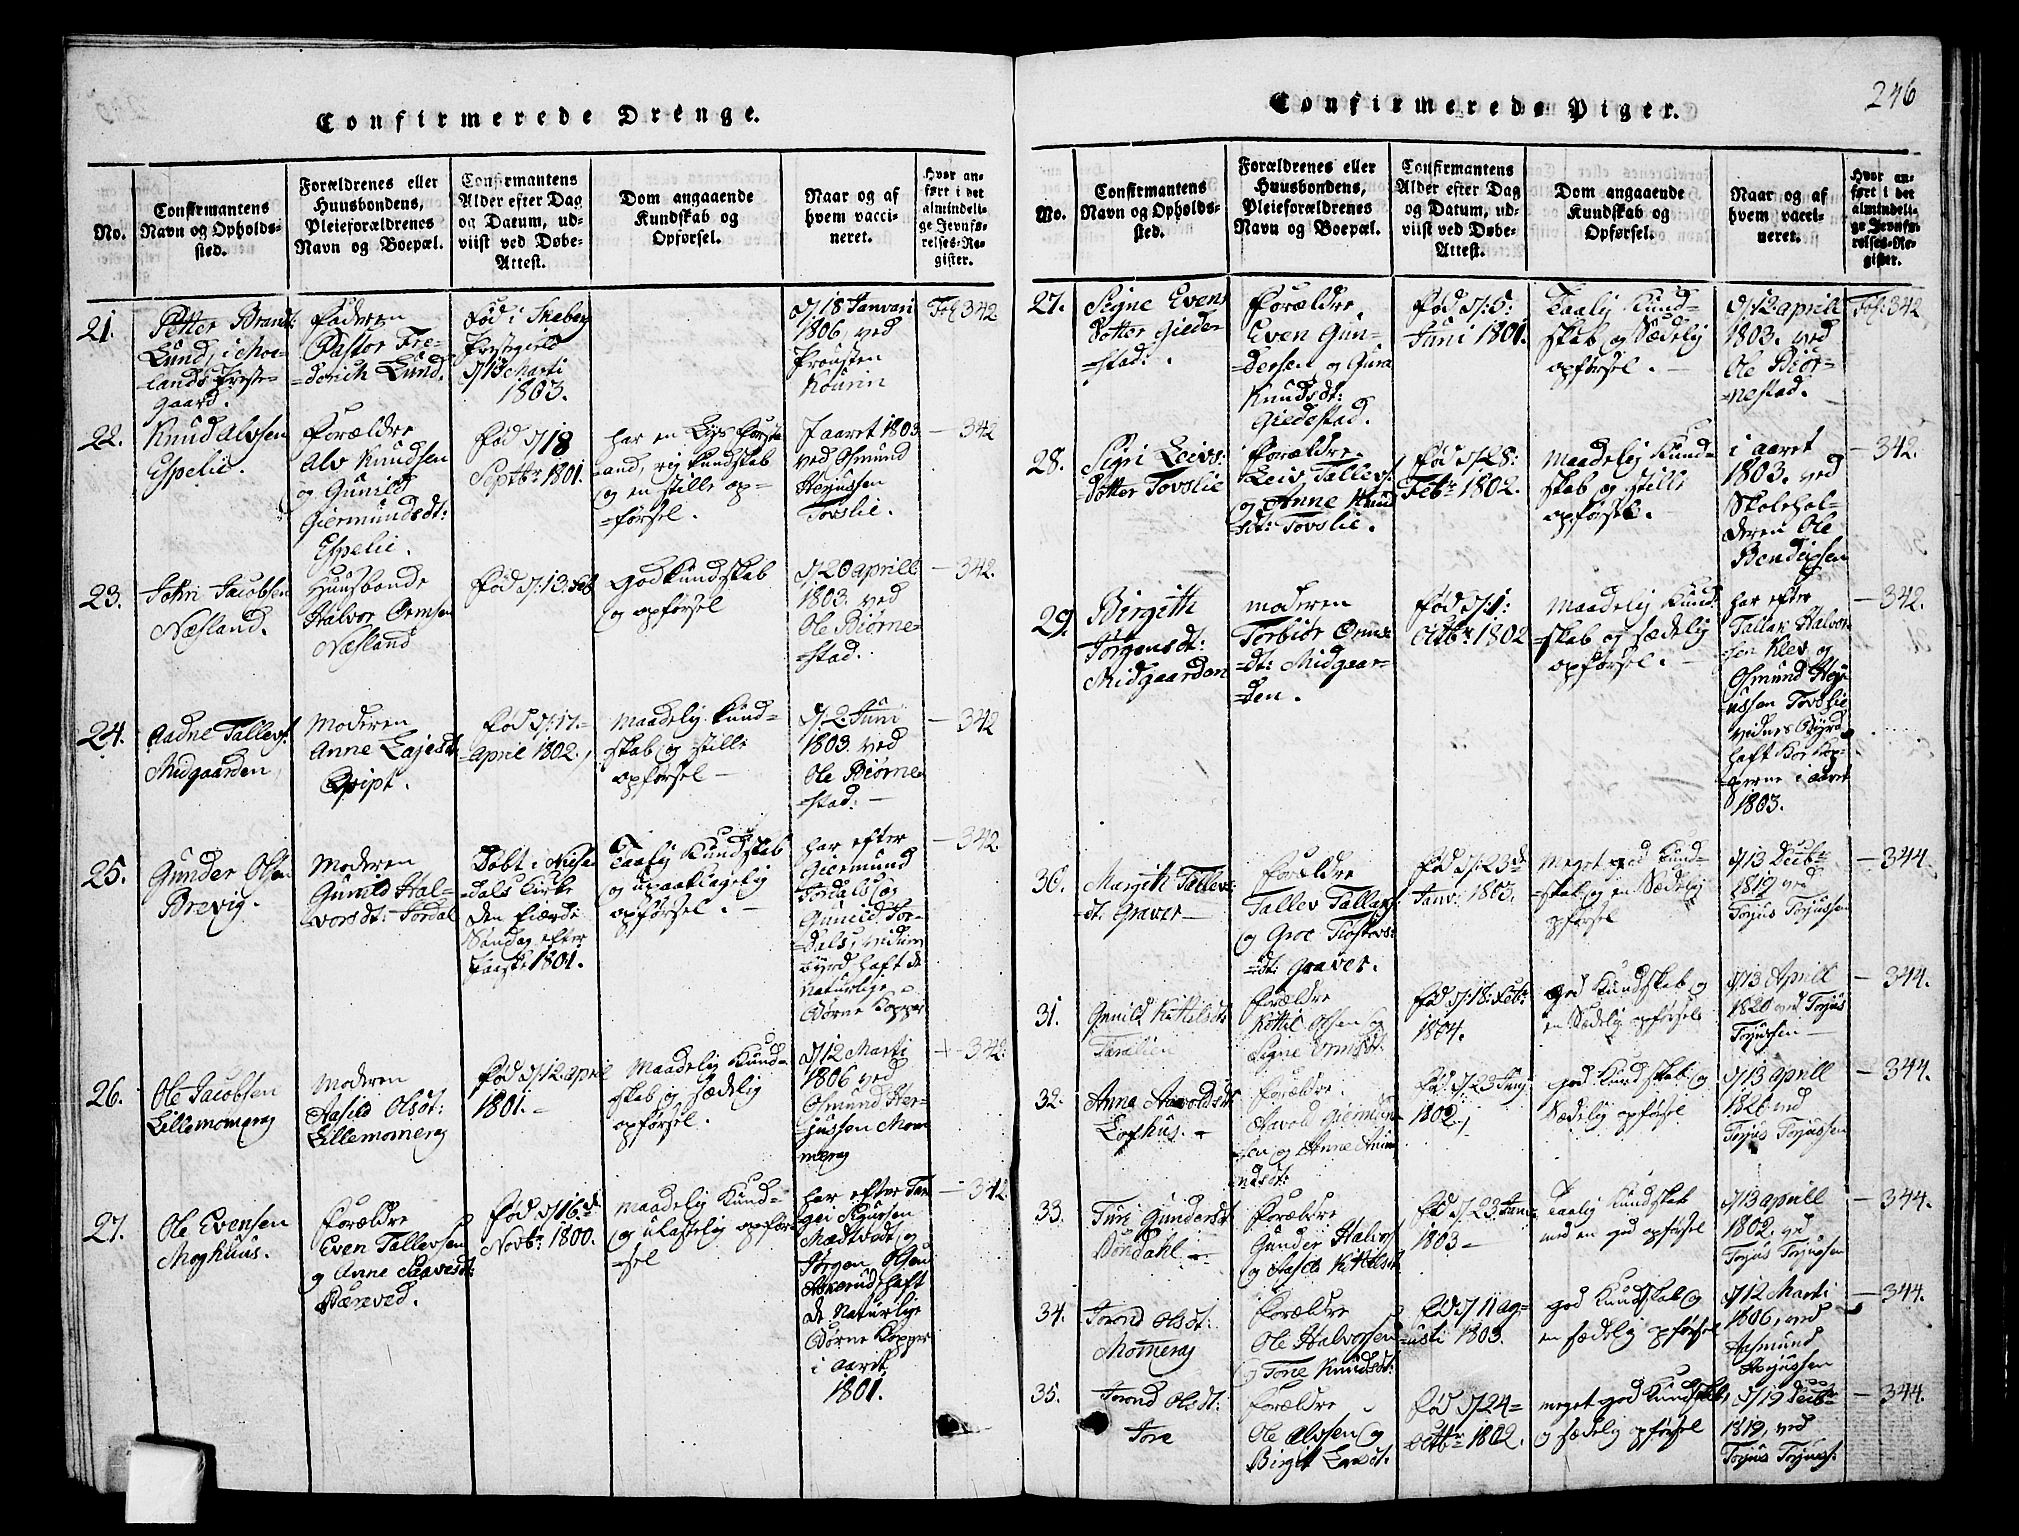 246
Confirmerede Drenge.
No.
Confirmantens
Navn og Opholds-
sted.
Forældrenes eller
Huusbondens,
Pleieforældrenes
Navn og Boepæl.
Confirmantens
Alder efter Dag
og Datum, ud-
viist ved Døbe-
Attest.
Dom angaaende
Kundskab og
Opførsel.
Naar og af
hvem vacci-
neret.
Hvor an-
ført i det
almindeli-
ge Jevnfø-
relses-Re-
gister.
21.
Petter Brandt
Lund, i Moe-
lands Præste-
gaard.
Faderen
Pastor Fre-
derich Lund.
Fød i
Præstegield
d/13 Marti
1803.
d/18 Januari
1806 ved
Prousten
Fol 342
22.
Knud Alvsen
Espelie.
Forældre
Alv Knudsen
og Gunild
Giermundsdt:
Espelie.
Fød d/18
Septbr 1801.
har en
rig Kundskab
og en stille op-
førsel.
I aaret 1803
ved Osmund
Herjussen
Tovslie.
342
23.
John Jacobsen
Næsland.
Huusbonde
Halvor Ormsen
Næsland
Fød d/13 Feb
God Kundskab
og opførsel
d/20 aprill
1803. ved
Ole Biørne-
stad.
342.
24.
Aadne Tallevs.
Midgaarden
Moderen
Anne
Fød d/17-
April 1802.
Maadelig Kund-
skab og stille
opførsel
d/2 Juni
1803. ved
Ole Biørne-
stad.
342
25.
Gunder Olsen
Brevig.
Moderen
Gunild Hal-
vorsdt: Tordal
Døbt i Nisse-
dals Kirke
den fierde
Søndag efter
Paaske 1801.
Taalig Kundskab
og upaaklagelig
opførsel.
har efter
Giermund
Tordals og
Gunild Tor-
dals, vidnes-
byrd haft de
Naturlige
Børne Kopper
342
26.
Ole Jacobsen
Lillemomerag
Moderen
Aasild Olsdt:
Lillemomerag
Fød d/12 april
1801.
Maadelig Kund-
skab og Sædelig
opførsel.
d/12 Marti
1806 ved
Osmund Her-
jussen Mom-
merag
342
27.
Ole Evensen
Moghuus.
Forældre
Even Tallevsen
og Anne
Fød d/16 d
Novbr 1800.
Maadelig Kund-
skab og ulastelig opfør-
sel
har efter
Jørgen Olsen
haft
de Naturlige
Børne Kopper
i aaret
1801.
342
Confirmerede Piger.
No.
Confirmantens
Navn og Opholds-
sted.
Forældrenes eller
Huusbondens,
Pleieforældrenes
Navn og Boepæl.
Confirmantens
Alder efter Dag
og Datum, ud-
viist ved Døbe-
Attest.
Dom angaaende
Kundskab og
Opførsel.
Naar og af
hvem vacci-
neret.
Hvor an-
ført i det
almindeli-
ge Jevnfø-
relses-Re-
gister.
27.
Signe Evens
dotter Giede-
stad.
Forældre,
Even Gun-
dersen og Gura
Knudsdt:
Giedestad.
Fød d/5:
Juni 1801.
Taalig Kund-
skab og Sædelig
opførsel.
d/12 april
1803. ved
Ole Biør-
nestad.
Fol: 342
28.
Sigri Leivs-
dotter Tovslie
Forældre.
Leiv Tallevs.
og Anne Knud
sdt: Tovslie.
Fød d/28:
Febr 1802.
Maadelig Kund-
skab og stille
opførsel.
i aaret
1803. ved
Skolehol-
deren Ole
Bendixsen
342.
29.
Birgith
Jørgensdt:
Midgaarden
moderen
Torbiør Orms-
dt: Midgaar-
den.
Fød d/1:
Octbr 1802
Maadelig Kund-
skab og sædelig
opførsel.
har efter
Tallak Halvor-
sen Klev og
Osmund Herj-
ussen Tovslie
vidnes Byrd,
haft Koe Kop-
perne i aaret
1803.
342.
30.
Margith Tallevs-
dt. Graver
Forældre
Tallev Tallaks
og Groe
dt: Graver.
Fød d/23 d
Janv: 1803.
Meget god Kund-
skab, og en Sædelig
opførsel
d/13 Decbr
1819 ved
Torjus Torjussen
344.
31.
Gunild Kittelsdt
Forældre
Kittil Olsen og
Signe
Fød d/18 Feb:
1804.
god Kundskab og
en Sædelig opførsel
d/13 Aprill
1820 ved Torjus
Torjussen
344.
32.
Anna Aavoldsdt
Lofthus.
Forældre.
Aavold Giermun-
sen og Anne Amu-
ndsdt:
Fød d/23 Junj
1802.
god Kundskab og
Sædelig opførsel
d/13 aprill
1820 ved
Torjus Torjussen
344.
33.
Turi Gundersdt
Dondahl
Forældre
Gunder Halvors
og Aaste Kittelsdt
Fød d/23 Jan
1803
Taalig Kundskab
med en god opførsel
d/13 aprill
1802. ved
Torjus Torjussen
344.
34.
Torond Olsdt:
Momerag
Forældre
Ole Halvorsen
og Tone Knudsdt:
Fød d/11 ag-
usti 1803.
god Kundskab og
en sædelig opførsel
d/12 Marti
1806, ved
Aasmund
Herjussen
344.
35.
Torond Olsdt:
Tore
Forældre
Ole Alvsen og
Birgit
Fød d/24-
Octbr 1802.
meget god Kundskab
og sædelig opførsel
d/19 Decbr
1819, ved
Torjus Torjuss.
344.